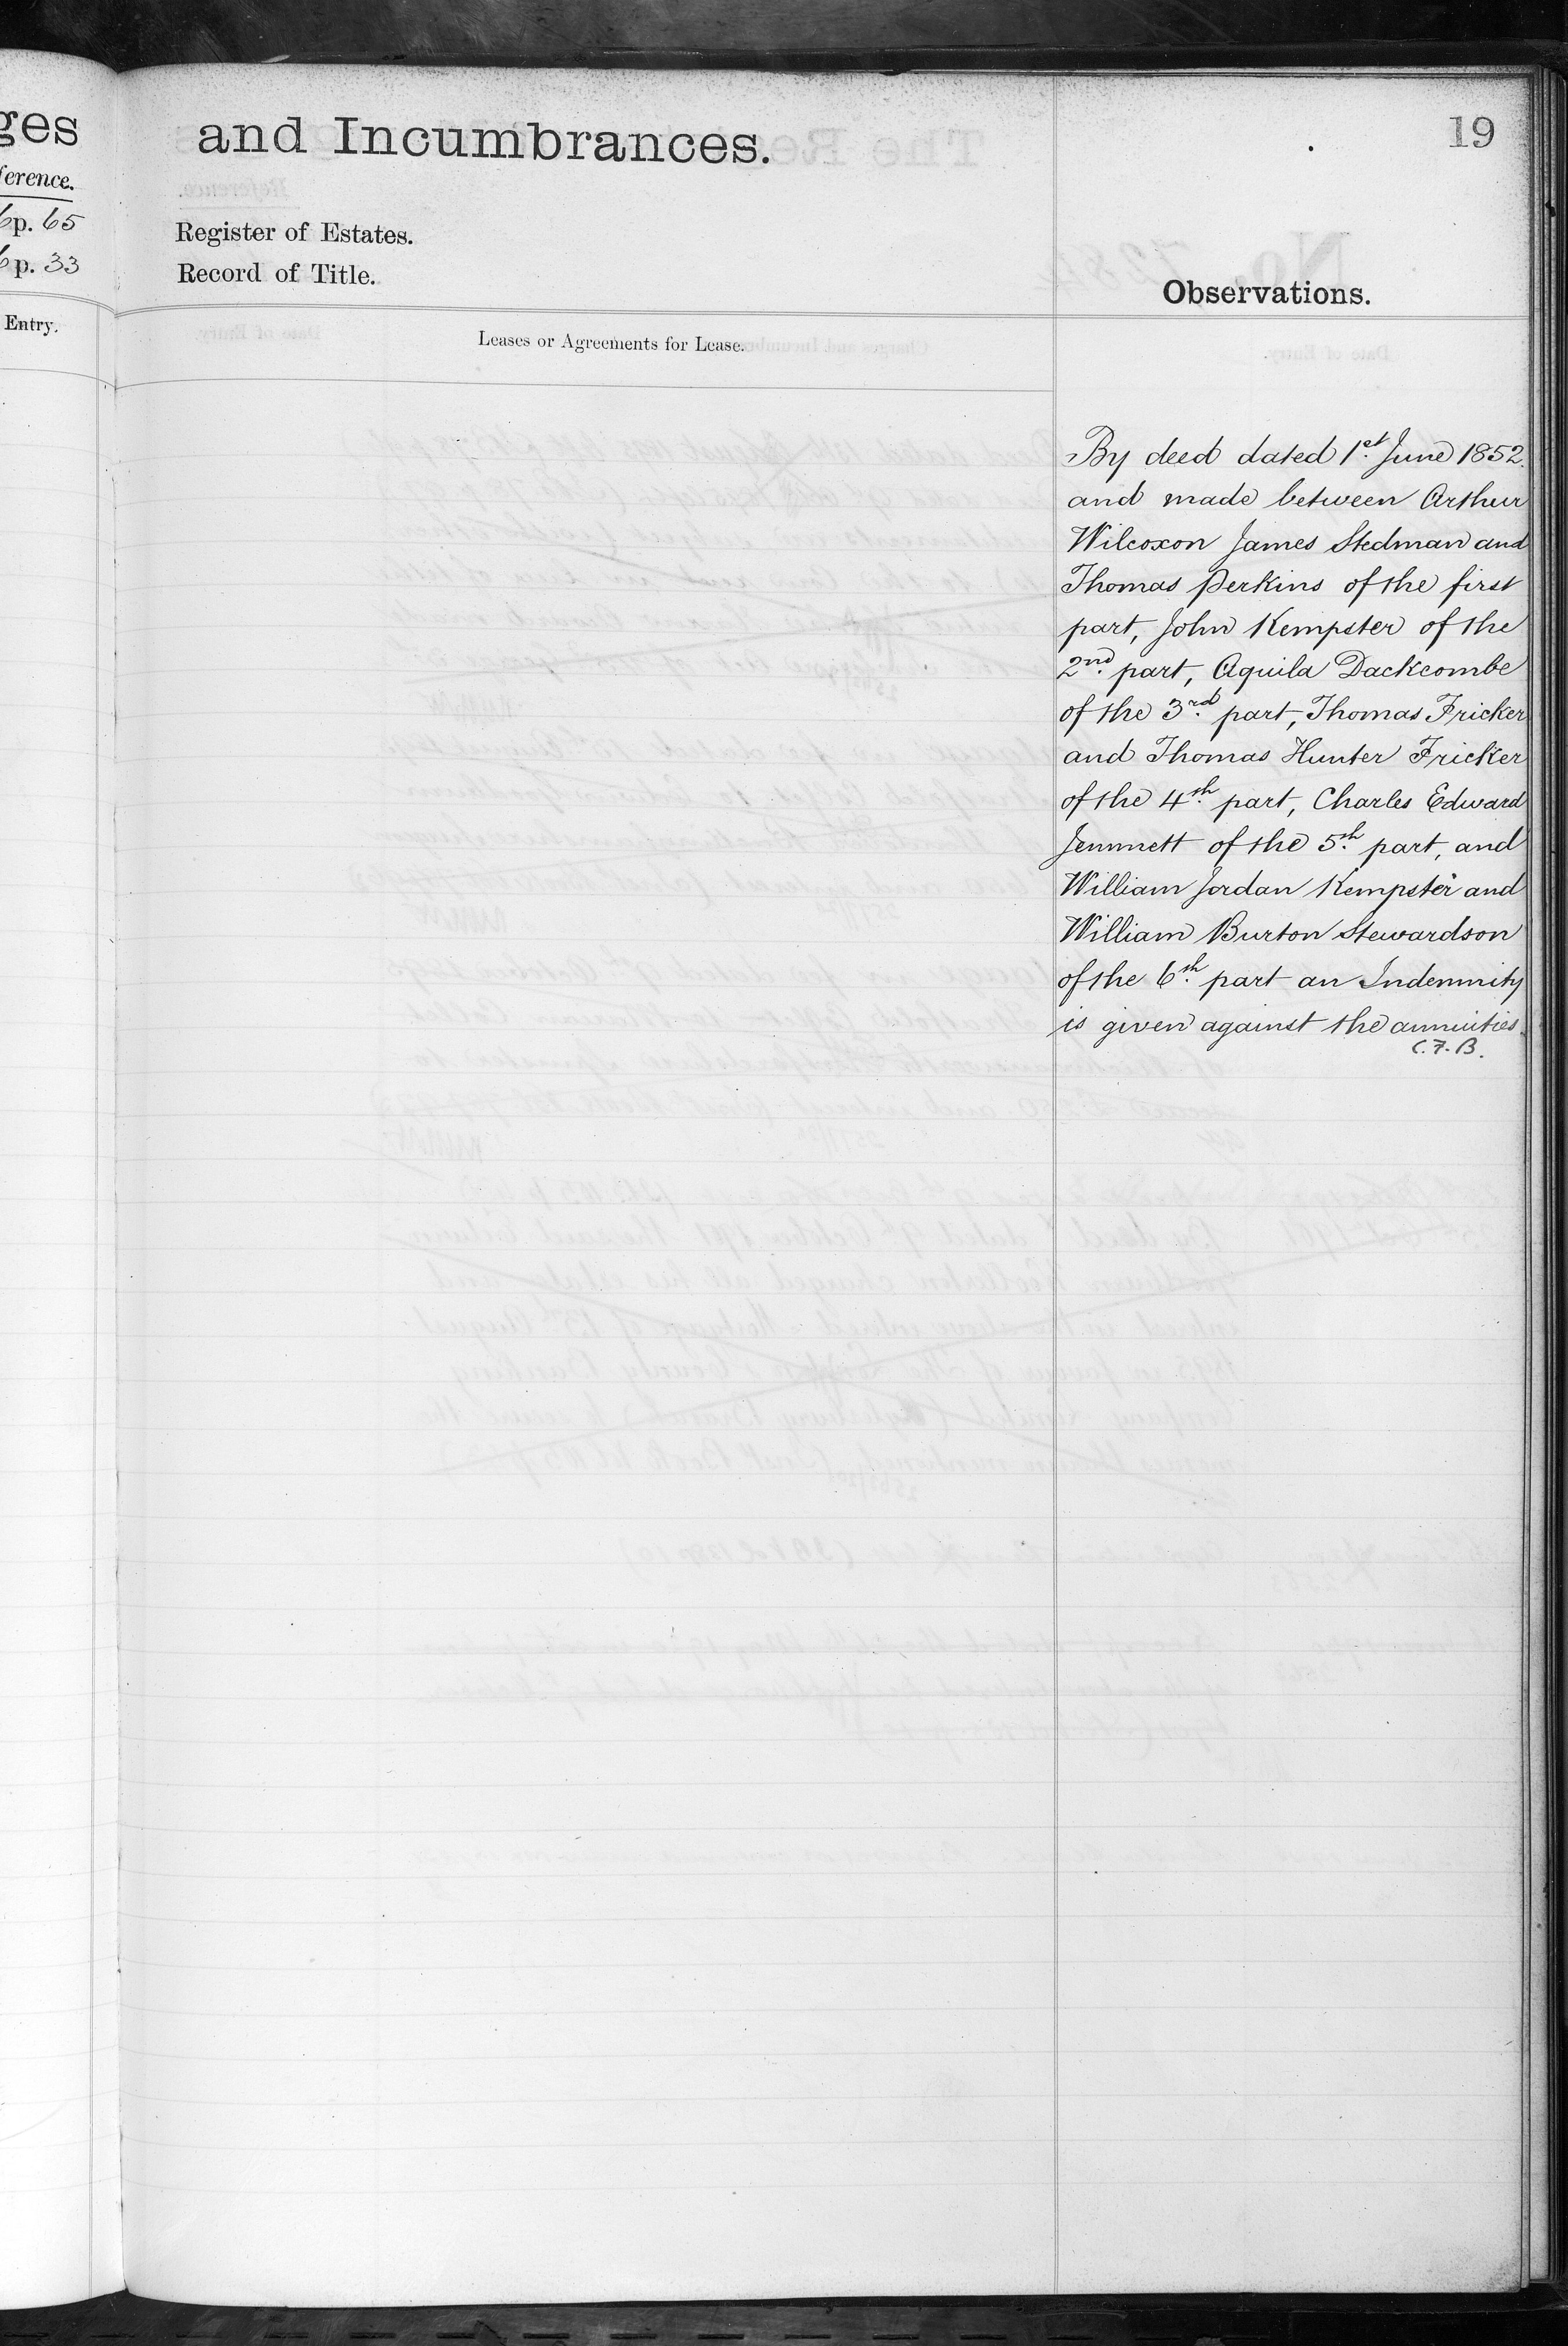 ges
ference.
6 p. 65
6 p. 33
Entry.
and Incumbrances.
19
Register of Estates.
Record of Title.
Observations.
Leases or Agreements for Lease.
By deed dated 1st June 1852
and made between Arthur
Wilcoxon James Stedman and
Thomas Perkins of the first
part, John Kempster of the
2nd part, Aquila Dackcombe
of the 3rd part, Thomas Fricker
and Thomas Hunter Fricker
of the 4th part, Charles Edward
Jemmett of the 5th part, and
William Jordan Kempster and
William Burton Stewardson
of the 6th part an Indemnity
is given against the annuities.
C.F.B.